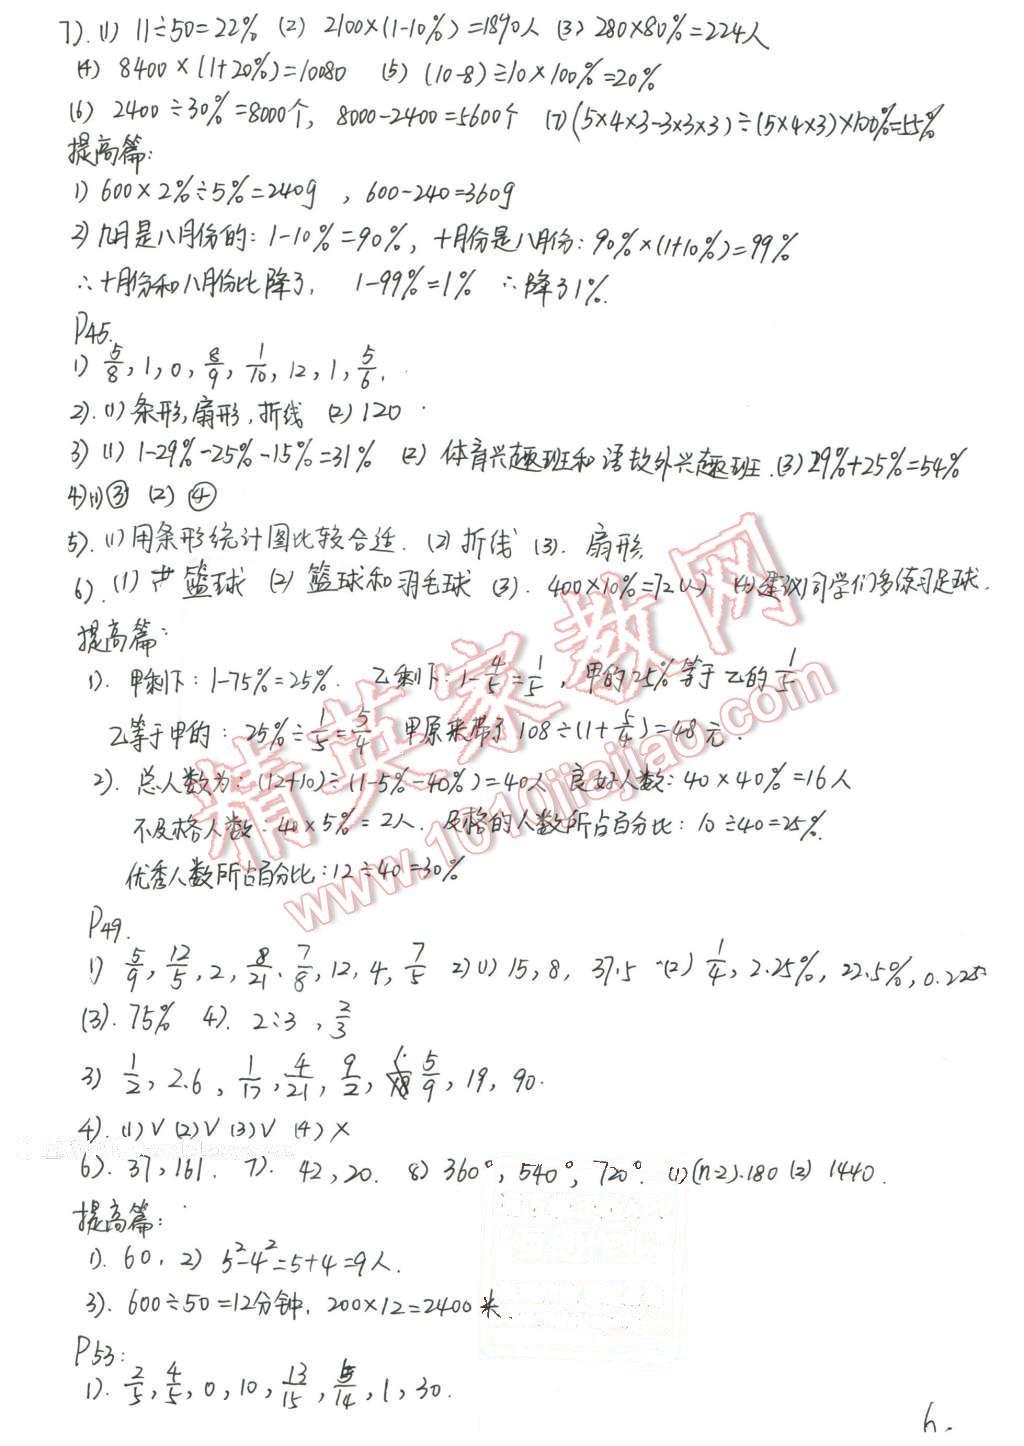 7). (1) 11÷50=22% (2) 2100×(1-10%)=1890人 (3) 280×80%=224人
(4) 8400×(1+20%)=10080 (5) (10-8)÷10×100%=20%
(6) 2400÷30%=8000个, 8000-2400=5600个 (7) (5×4×3-3×3×3)÷(5×4×3)×100%=55%
提高篇:
1) 600×2%÷5%=240g , 600-240=360g
2) 九月是八月份的: 1-10%=90%, 十月份是八月份: 90%×(1+10%)=99%
∴十月份和八月份比降了, 1-99%=1% ∴降了1%.
P45.
1) 5/8, 1, 0, 8/9, 1/10, 12, 1, 5/6.
2). (1) 条形, 扇形, 折线 (2) 120
3) (1) 1-29%-25%-15%=31% (2) 体育兴趣班和语数外兴趣班. (3) 29%+25%=54%
4) (1) ③ (2) ④
5). (1) 用条形统计图比较合适. (2) 折线 (3). 扇形
6). (1) 篮球 (2) 篮球和羽毛球 (3). 400×10%= (4) 建议同学们多练习足球.
提高篇:
1). 甲剩下: 1-75%=25%. 乙剩下: 1-4/5=1/5, 甲的25%等于乙的1/5
乙等于甲的: 25%÷1/5=5/4 甲原来带了 108÷(1+5/4)=48元.
2). 总人数为: (12+10)÷(1-5%-40%)=40人 良好人数: 40×40%=16人
不及格人数: 40×5%=2人. 及格的人数所占百分比: 10÷40=25%.
优秀人数所占百分比: 12÷40=30%
P49.
1) 5/9, 12/5, 2, 8/21, 7/8, 12, 4, 7/5 2) (1) 15, 8, 37.5 (2) 1/4, 2.25%, 22.5%, 0.225
(3). 75% 4). 2:3 , 2/3
3) 1/2, 2.6, 1/17, 4/21, 9/2, 5/9, 19, 90.
4). (1) V (2) V (3) V (4) ×
6). 37, 161. 7). 42, 20. 8) 360°, 540°, 720°. (1) (n-2).180 (2) 1440.
提高篇:
1). 60, 2) 5²-4²=5+4=9人.
3). 600÷50=12分钟, 200×12=2400米.
P53:
1). 2/5, 4/5, 0, 10, 13/15, 5/14, 1, 30.
6.
精英家教网
www.1010jiajiao.com